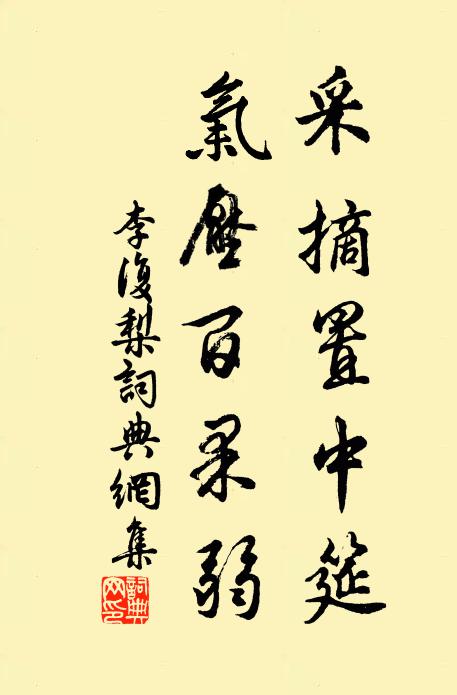 采摘置中筵
氣壓百果弱
李復梨詞典網集
詞典网印